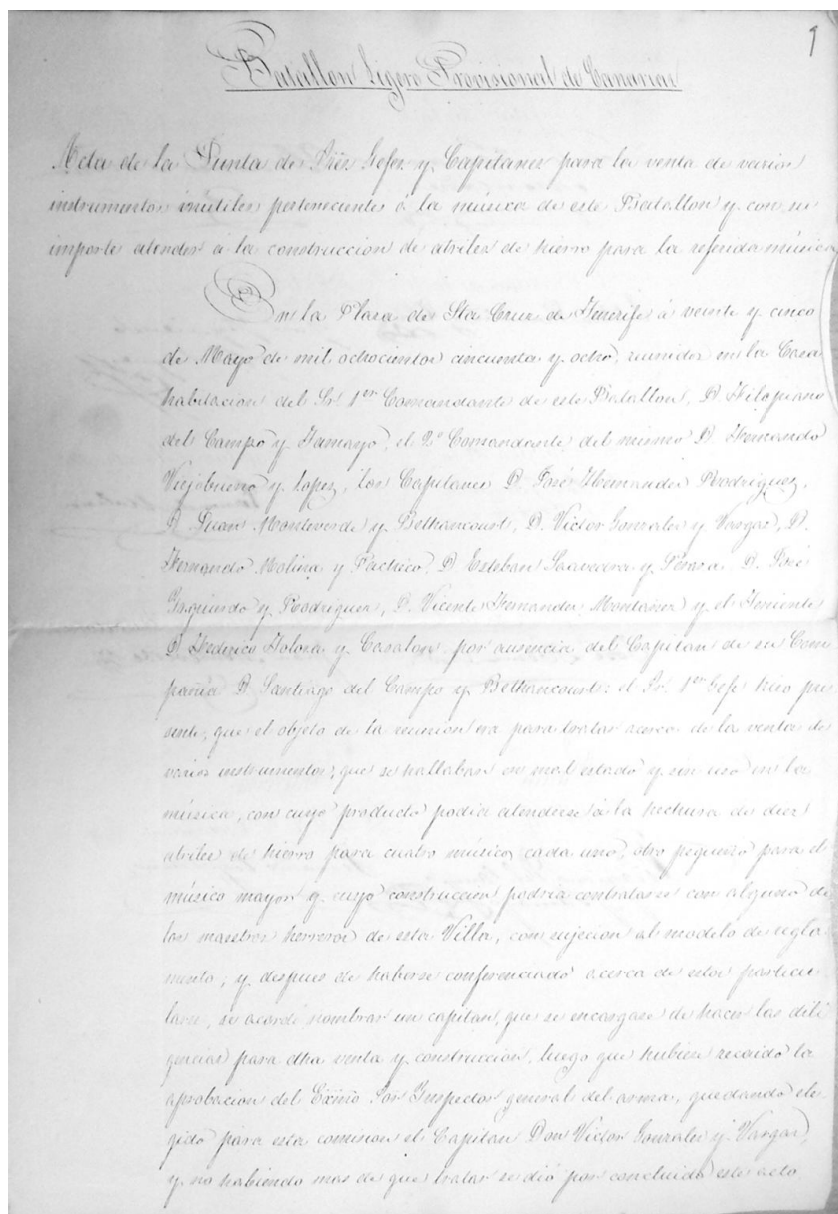 1
Batallon Ligero Provisional de Canarias
Acta de la Junta de Sres Gefes y Capitanes para la venta de varios
instrumentos inutiles pertenecientes á la música de este Batallon y con su
importe atender á la construccion de atriles de hierro para la referida música
En la Plaza de Sta Cruz de Tenerife á veinte y cinco
de Mayo de mil ochocientos cincuenta y ocho, reunidos en la Casa
habitacion del Sr. 1er Comandante de este Batallon, D. Filopiano
del Campo y Tamayo, el 2o Comandante del mismo D. Fernando
Viejobueno y Lopez, los Capitanes D. José Hernandez Rodriguez,
D. Juan Monteverde y Bethancourt, D. Victor Gonzalez y Vargas, D.
Fernando Molina y Pacheco, D. Esteban Saavedra y Peraza, D. José
Izquierdo y Rodriguez, D. Vicente Fernandez Montañez y el Teniente
D. Federico Tolosa y Casalon por ausencia del Capitan de su Com
pañia D. Santiago del Campo y Bethancourt: el Sr. 1er Gefe hizo pre
sente, que el objeto de la reunion era para tratar acerca de la venta de
varios instrumentos, que se hallaban en mal estado y sin uso en la
música, con cuyo producto podia atenderse á la hechura de diez
atriles de hierro para cuatro músicos cada uno, otro pequeño para el
músico mayor y cuya construccion podria contratarse con alguno de
los maestros herreros de esta Villa, con sujecion al modelo de regla
mento; y despues de haberse conferenciado acerca de estos particu
lares, se acordó nombrar un capitan, que se encargase de hacer las dili
gencias para dha venta y construccion, luego que hubiese recaido la
aprobacion del Exmo Sor Inspector general del arma, quedando ele
gido para esta comision el Capitan Don Victor Gonzalez y Vargas,
y no habiendo mas de que tratar se dió por concluido este acto